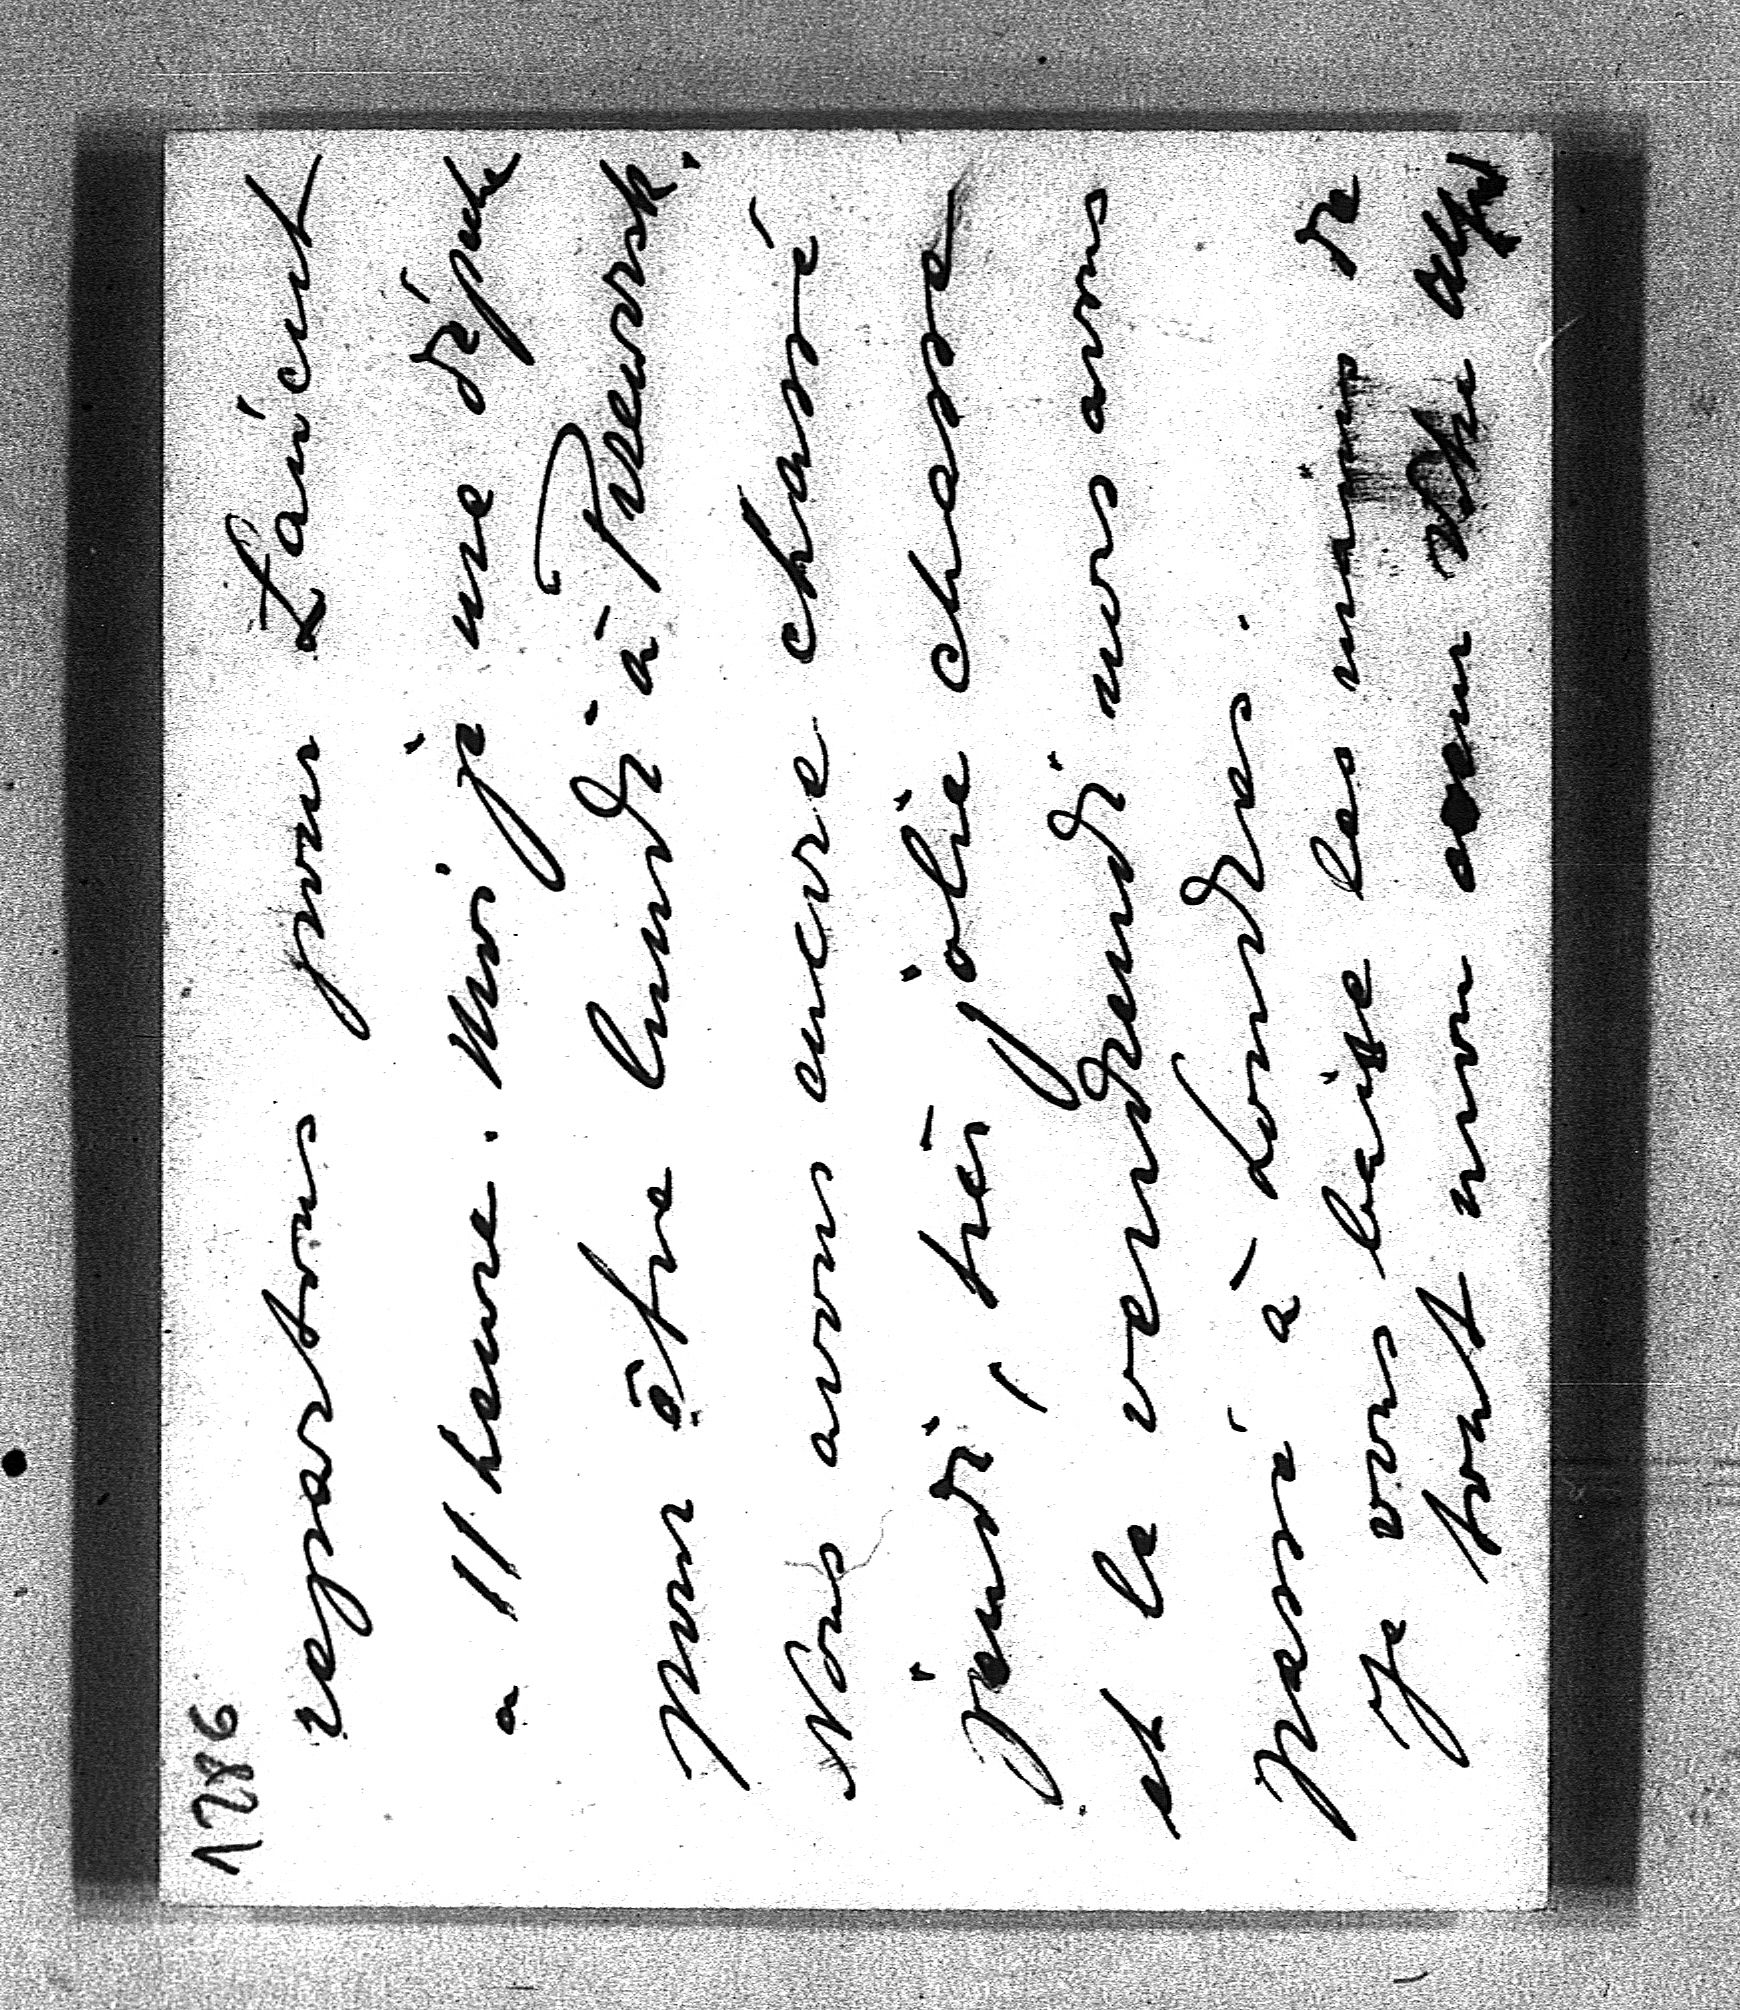 1286
repartons pour Łańcut
a 11 heure. Moi je me dépeche
pour être lundi à Przeworsk.
Nous avons encore chassé
jeudi, très jolie chasse
et le vendredi nous avons
passé à Londres.
Je vous baise les mains de
tout mon coeur votre Alfred